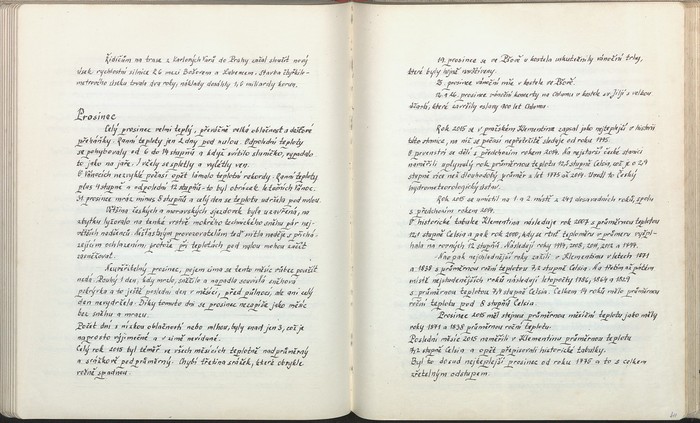 Řidičům na trase z Karlových Varů do Prahy začal sloužit nový
úsek rychlostní silnice R6 mezi Bošovem a Lubencem. Stavba čtyřkilo-
metrového úseku trvala dva roky, náklady dosáhly 1,6 miliardy korun.
Prosinec
Celý prosinec velmi teplý, převážně velká oblačnost a dešťové
přeháňky. Ranní teploty jen 2 dny pod nulou. Odpolední teploty
se pohybovaly od 6 do 14 stupňů a když svítilo sluníčko, vypadalo
to jako na jaře. I včely se spletly a vylétly ven.
O Vánocích nezvyklé počasí opět lámalo teplotní rekordy. Ranní teploty
plus 4 stupně a odpolední 12 stupňů - to byl obrázek letošních Vánoc.
31. prosince mráz minus 8 stupňů a celý den se teplota udržela pod nulou.
Většina českých a moravských sjezdovek byla uzavřena, na
zbytku lyžovalo na tenké vrstvě mokrého technického sněhu pár nej-
větších nadšenců. Nešťastným provozovatelům teď svitla naděje s přichá-
zejícím ochlazením, protože při teplotách pod nulou mohou začít
zasněžovat.
Neuvěřitelný prosinec, pojem zima se tento měsíc vůbec použít
nedá. Pouhý 1 den, kdy mrzlo, sněžilo a napadla souvislá sněhová
pokrývka a to ještě poslední den v měsíci, před půlnocí, ale ani celý
den nevydržela. Díky tomuto dni se prosinec nezapíše jako měsíc
bez sněhu a mrazu.
Počet dní s nízkou oblačností nebo mlhou, byly snad jen 3, což je
naprosto výjimečné a v zimě nevídané.
Celý rok 2015 byl téměř ve všech měsících teplotně nadprůměrný
a srážkově podprůměrný. Chybí třetina srážek, které obvykle
ročně spadnou.
19. prosince se ve Žlově u kostela uskutečnily vánoční trhy,
které byly hojně navštíveny.
25. prosince vánoční mše v kostele ve
a 26. prosince vánoční koncerty na Chlumu v kostele sv. Jiljí s velkou
účastí, které završily oslavy 800 let Chlumu.
Rok 2015 se v pražském Klementinu zapsal jako nejteplejší v historii
této stanice, na níž se počasí nepřetržitě sleduje od roku 1775.
O prvenství se dělí s předchozím rokem 2014. Na nejstarší české stanici
naměřili uplynulý rok průměrnou teplotu 12,8 stupně Celsia, což je o 2,9
stupně více než dlouhodobý průměr z let 1775 až 2014. Uvedl to Český
hydrometeorologický ústav.
Rok 2015 se umístil na 1. a 2. místě z 241 dosavadních roků, spolu
s předchozím rokem 2014.
V historické tabulce Klementina následuje rok 2007 s průměrnou teplotou
12,1 stupně Celsia a pak rok 2000, kdy se rtuť teploměru v průměru vyšpl-
hala na rovných 12 stupňů. Následují roky 1994, 2008, 2011, 2012 a 1999.
Naopak nejchladnější roky zažili v Klementinu v letech 1871
a 1838 s průměrnou roční teplotou 7,2 stupně Celsia. Na třetím až pátém
místě nejstudenějších roků následují letopočty 1786, 1864 a 1829
s průměrnou teplotou 7,4 stupně Celsia. Celkem 14 roků mělo průměrnou
roční teplotu pod 8 stupňů Celsia.
Prosinec 2015 měl stejnou průměrnou měsíční teplotu jako měly
roky 1871 a 1838 průměrnou roční teplotu.
Poslední měsíc 2015 naměřili v Klementinu průměrnou teplotu
7,2 stupně Celsia a opět přepisovali historické tabulky.
Byl to dosud nejteplejší prosinec od roku 1775 a to s celkem
zřetelným odstupem.